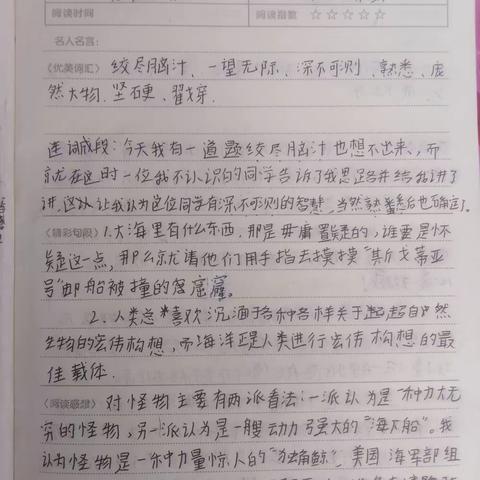 阅读时间 阅读指数 ☆☆☆☆☆
名人名言:
《优美词汇》绞尽脑汁、一望无际、深不可则、熟悉、庞
然大物、坚硬、
连词成段:今天我有一道题绞尽脑汁也想不出来、而
就在这时一位我不认识的同学告诉了我思路并给我讲了
讲,这以让我认为这位同学有深不可则的智慧,当然熟悉后也确定了。
《精彩句段》1.大海里有什么东西,那是毋庸置疑的,谁要是怀
疑这一点,那么就请他们用手指去摸摸“斯戈蒂亚
号”邮船被撞的窟窿。
2、人类总喜欢沉湎于各种各样关于超自然
生物的宏伟构想,而海洋正是人类进行宏伟构想的最
佳载体.
《阅读感想》对怪物主要有两派看法:一派认为是一种力大无
穷的怪物,另一派认为是一艘动力强大的“海下船”。我
认为怪物是一种力量惊人的“独角鲸”,美国海军部组